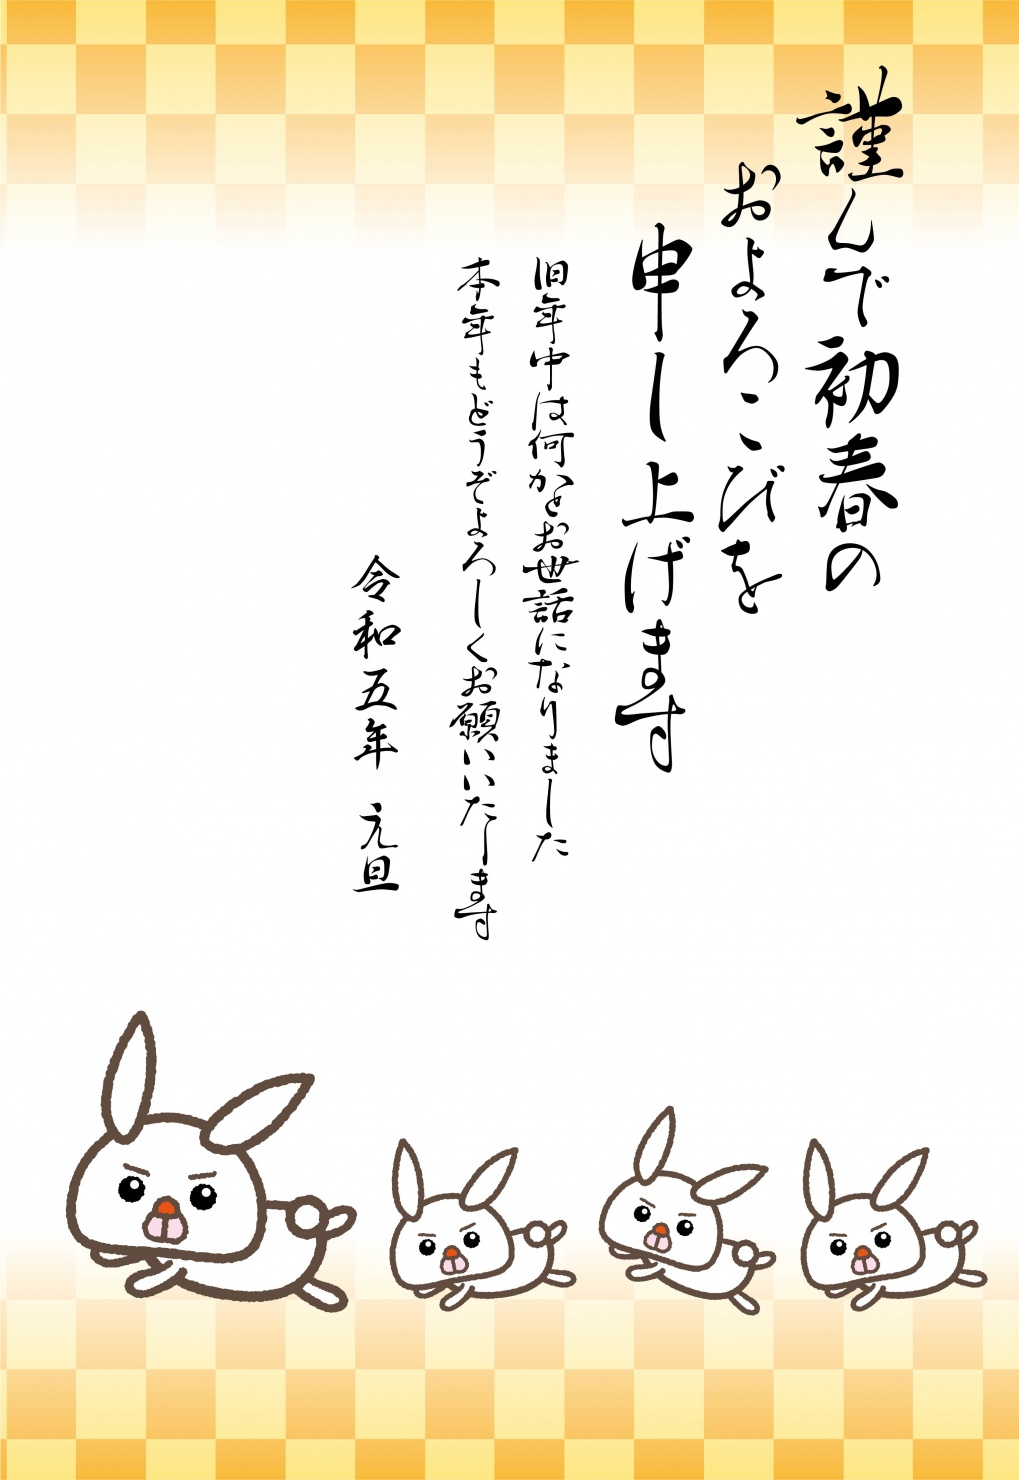 謹んで初春の
およろこびを
申し上げます
旧年中は何かとお世話になりました
本年もどうぞよろしくお願いいたします
令和五年　元旦